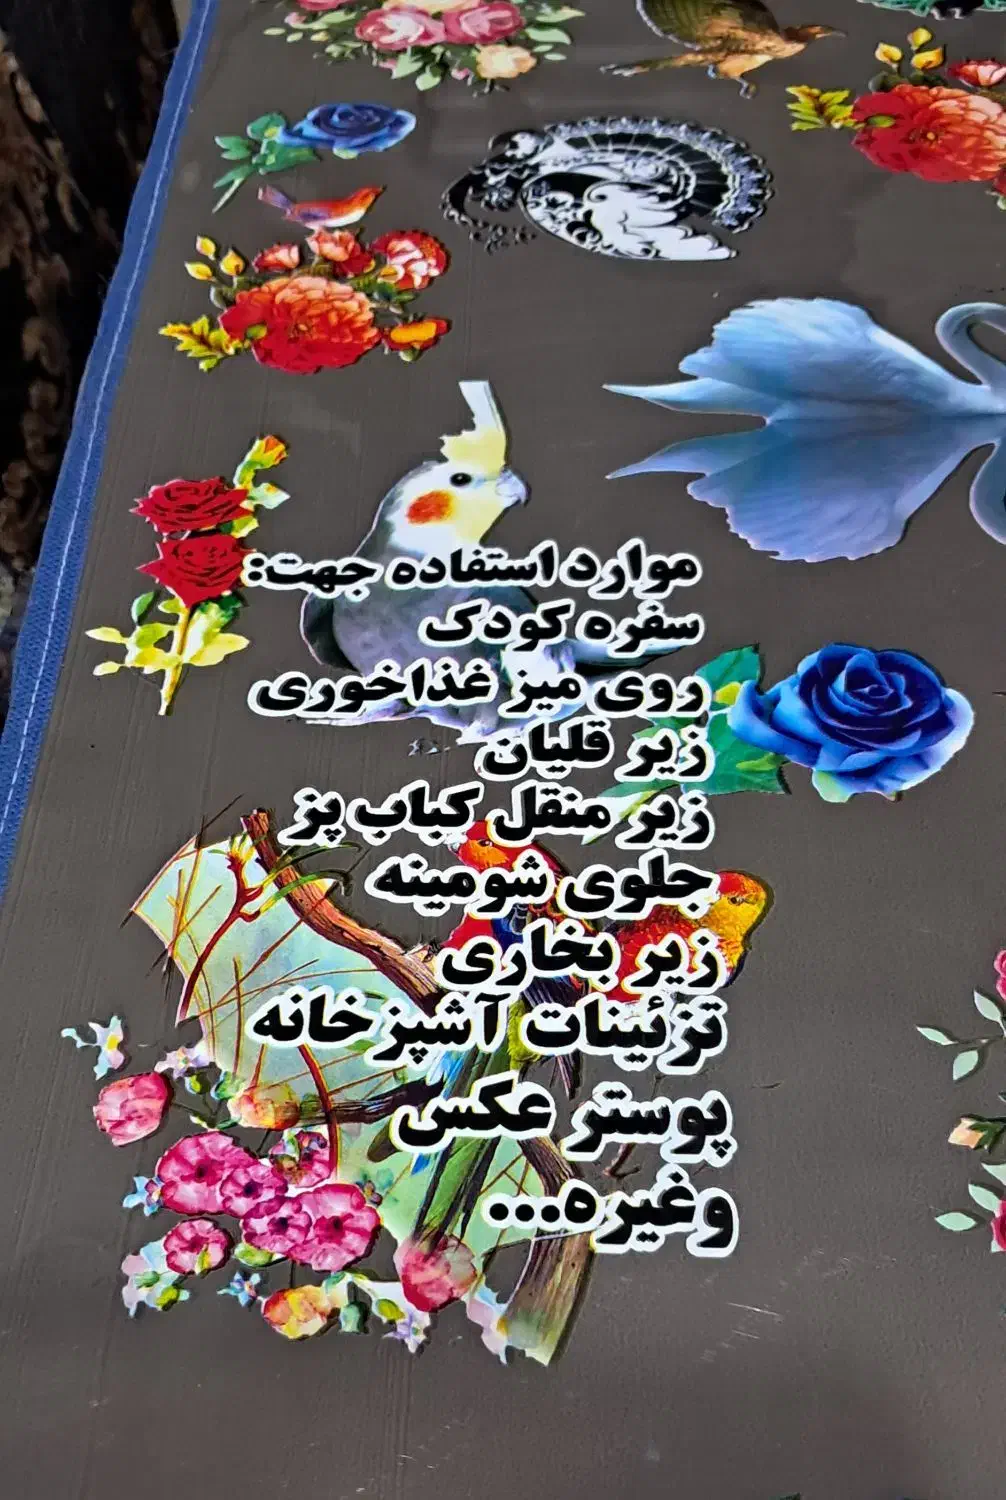 موارد استفاده جهت:
سفره کودک
روی میز غذاخوری
زیر قلیان
زیر منقل کباب پز
جلوی شومینه
زیر بخاری
تزئینات آشپزخانه
پوستر عکس
وغیره...